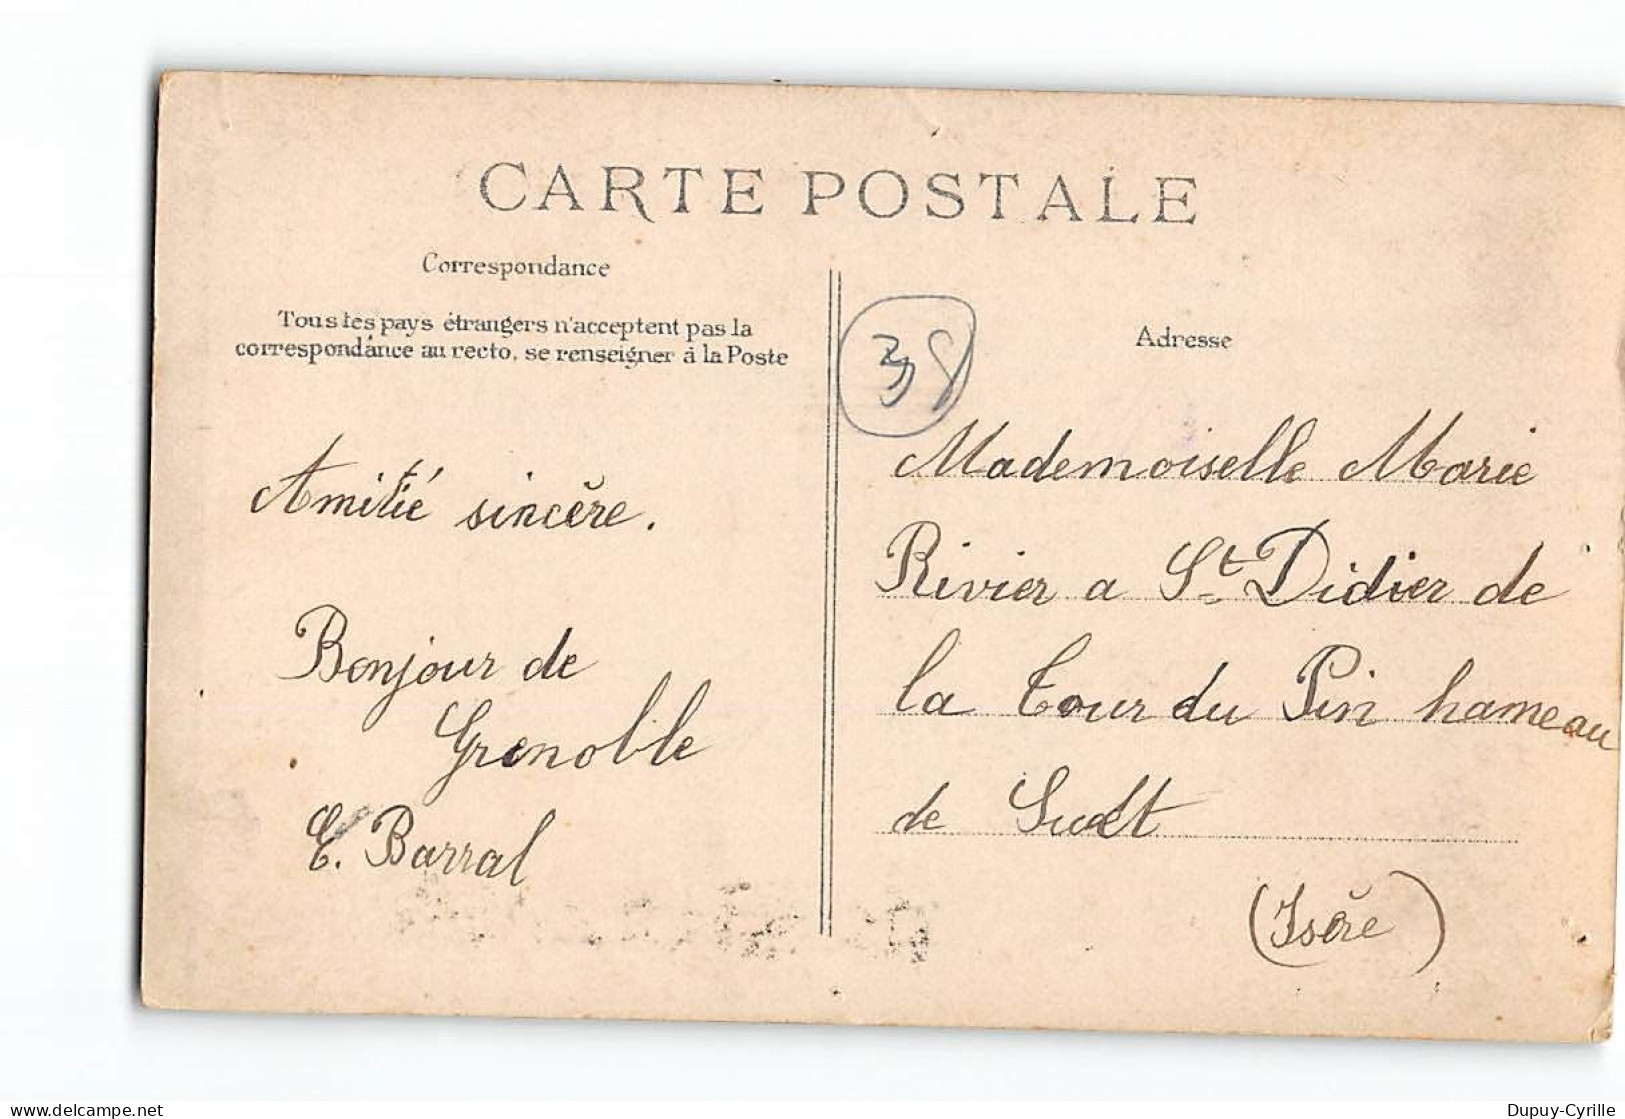 CARTE POSTALE
Correspondance
Tous les pays étrangers n'acceptent pas la
correspondance au recto, se renseigner à la Poste
Amitié sincère.
Bonjour de
Grenoble
E. Barral
38
Adresse
Mademoiselle Marie
Rivier a St Didier de
la Tour du Pin hameau
de
(Isère)
delcampe.net
Dupuy-Cyrille